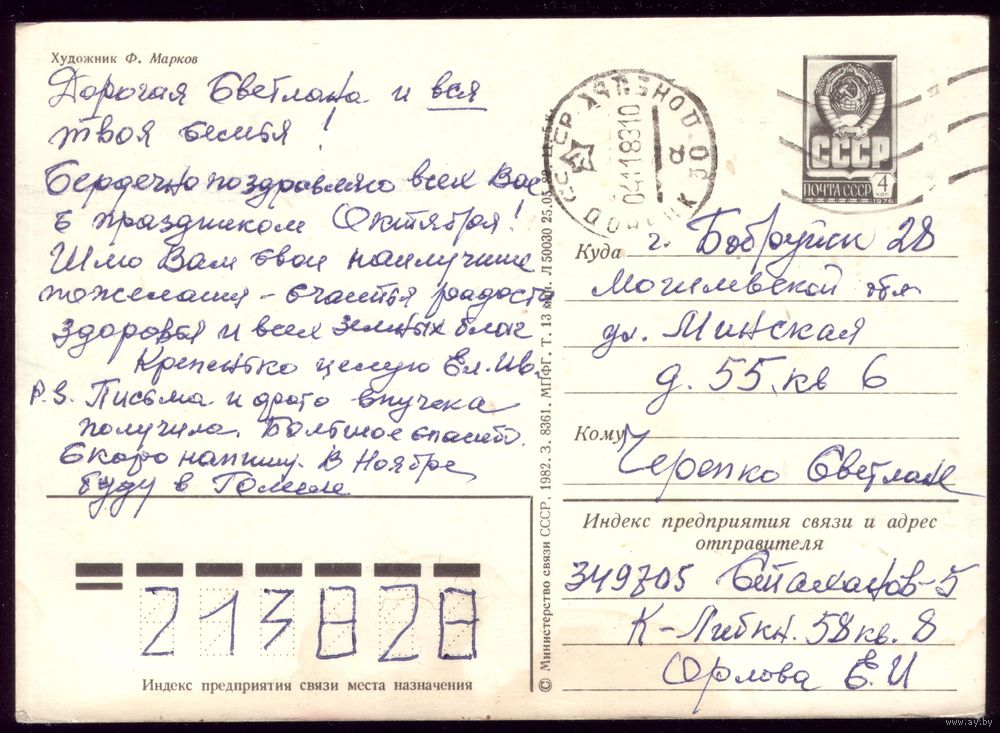 Художник Ф. Марков
Дорогая Светлана и вся
твоя семья!
Сердечно поздравляю всех Вас
с праздником Октября!
Шлю Вам свои наилучшие
пожелания - счастья радости
здоровья и всех земных благ
Крепенько целую Ел. Ив.
P.S. Письма и фото внучека
получила. Большое спасибо.
Скоро напишу. В Ноябре
буду в Гомеле
© Министерство связи СССР, 1982. З. 8361. МПФГ. Т. 13 млн. Л 50030 25.05.82
СССР
ДОНЕЦК
04118310
СССР
ПОЧТА СССР
4
КОП
1976
Куда г. Бобруйск 28
Могилевской обл
ул. Минская
д. 55. кв 6
Кому Черепко Светлане
Индекс предприятия связи и адрес
отправителя
349705 Стаханов-5
К-Либкн. 58 кв. 8
Орлова Е.И
213828
Индекс предприятия связи места назначения
www.ay.by